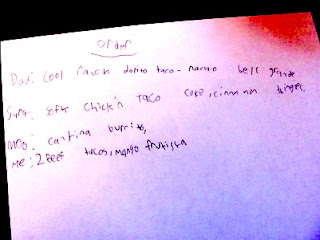 order
Dad: Cool ranch dorito taco - nacho bell grande
soft chick'n Taco coke, cinnamon twists,
Mno: cantina burrito,
Me: 2 Beef tacos, mango frutista